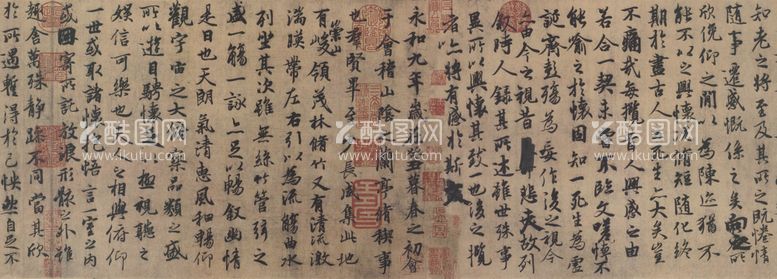 知老之將至及其所之既惓情
隨事遷感慨係之矣向之所
欣俛仰之間以為陳迹猶不
能不以之興懷況脩短隨化終
期於盡古人云死生亦大矣豈
不痛哉每攬昔人興感之由
若合一契未嘗不臨文嗟悼不
能喻之於懷固知一死生為虛
誕齊彭殤為妄作後之視今
亦由今之視昔悲夫故列
叙時人録其所述雖世殊事
異所以興懷其致一也後之攬
者亦將有感於斯文
永和九年歲在癸丑暮春之初會
于會稽山陰之蘭亭脩稧事
也羣賢畢至少長咸集此地
有崇山峻領茂林脩竹又有清流激
湍暎帶左右引以為流觴曲水
列坐其次雖無絲竹管弦之
盛一觴一詠亦足以暢叙幽情
是日也天朗氣清惠風和暢仰
觀宇宙之大俯察品類之盛
所以遊目騁懷足以極視聽之
娛信可樂也夫人之相與俯仰
一世或取諸懷抱悟言一室之內
或因寄所託放浪形骸之外雖
趣舍萬殊靜躁不同當其欣
於所遇暫得於己怏然自足不
www.ikutu.com
www.ikutu.com
www.ikutu.com
www.ikutu.com
www.ikutu.com
www.ikutu.com